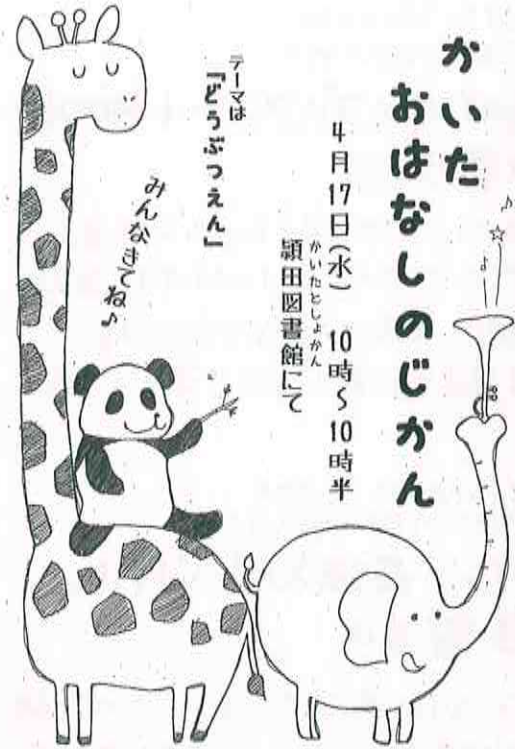 かいた
おはなしのじかん
4月17日(水) 10時〜10時半
かいたとしょかん
頴田図書館にて
テーマは
『どうぶつえん』
みんなきてね♪